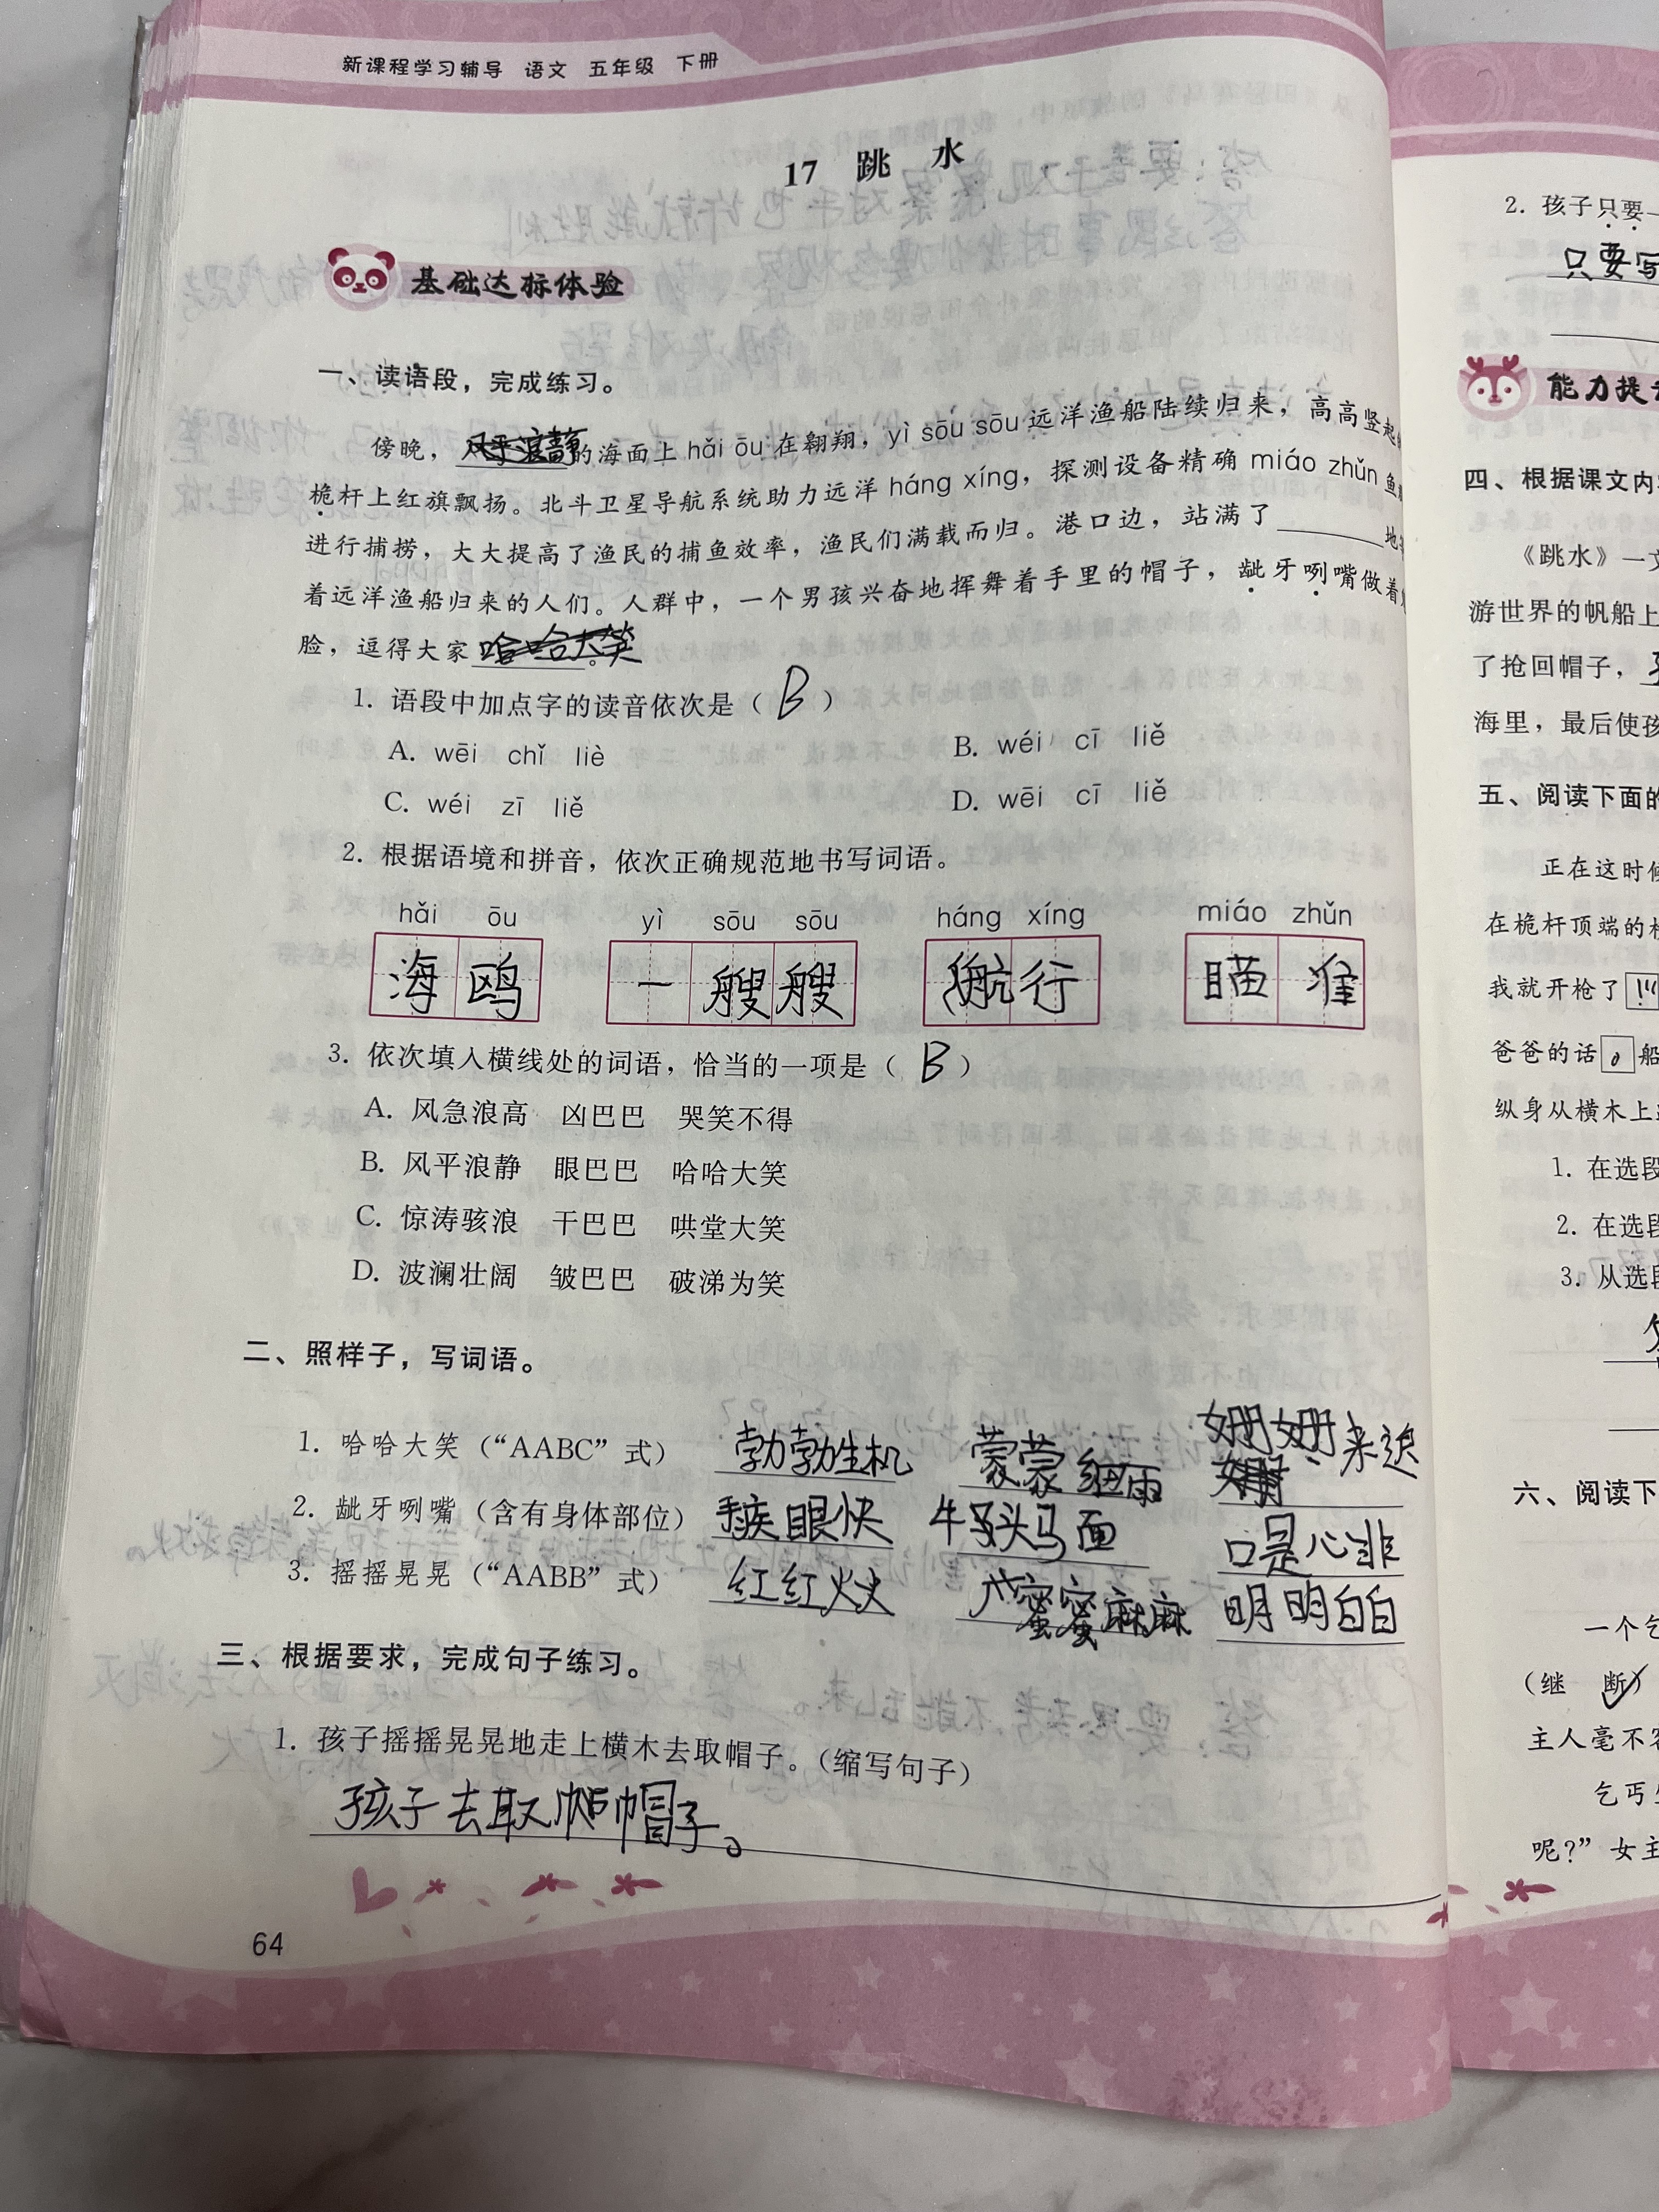 新课程学习辅导 语文 五年级 下册
17 跳 水
基础达标体验
一、读语段，完成练习。
傍晚，风平浪静的海面上 hǎi ōu 在翱翔，yì sōu sōu 远洋渔船陆续归来，高高竖起
桅杆上红旗飘扬。北斗卫星导航系统助力远洋 háng xíng，探测设备精确 miáo zhǔn 鱼
进行捕捞，大大提高了渔民的捕鱼效率，渔民们满载而归。港口边，站满了______地
着远洋渔船归来的人们。人群中，一个男孩兴奋地挥舞着手里的帽子，龇牙咧嘴做着
脸，逗得大家哈哈大笑。
1. 语段中加点字的读音依次是（ B ）
A. wēi chǐ liè
B. wéi cī liě
C. wéi zī liě
D. wēi cī liě
2. 根据语境和拼音，依次正确规范地书写词语。
hǎi ōu yì sōu sōu háng xíng miáo zhǔn
海鸥 一艘艘 航行 瞄准
3. 依次填入横线处的词语，恰当的一项是（ B ）
A. 风急浪高 凶巴巴 哭笑不得
B. 风平浪静 眼巴巴 哈哈大笑
C. 惊涛骇浪 干巴巴 哄堂大笑
D. 波澜壮阔 皱巴巴 破涕为笑
二、照样子，写词语。
1. 哈哈大笑（“AABC”式） 勃勃生机 蒙蒙细雨 姗姗来迟
2. 龇牙咧嘴（含有身体部位） 手疾眼快 牛头马面 口是心非
3. 摇摇晃晃（“AABB”式） 红红火火 蜜蜜麻麻 明明白白
三、根据要求，完成句子练习。
1. 孩子摇摇晃晃地走上横木去取帽子。（缩写句子）
孩子去取帽子。
64
2. 孩子只要
只要写
能力提
四、根据课文内
《跳水》一文
游世界的帆船上
了抢回帽子，
海里，最后使孩
五、阅读下面的
正在这时候
在桅杆顶端的
我就开枪了
爸爸的话。船
纵身从横木上
1. 在选段
2. 在选段
3. 从选段
六、阅读下
一个乞
（继 断）
主人毫不客
乞丐
呢？”女主